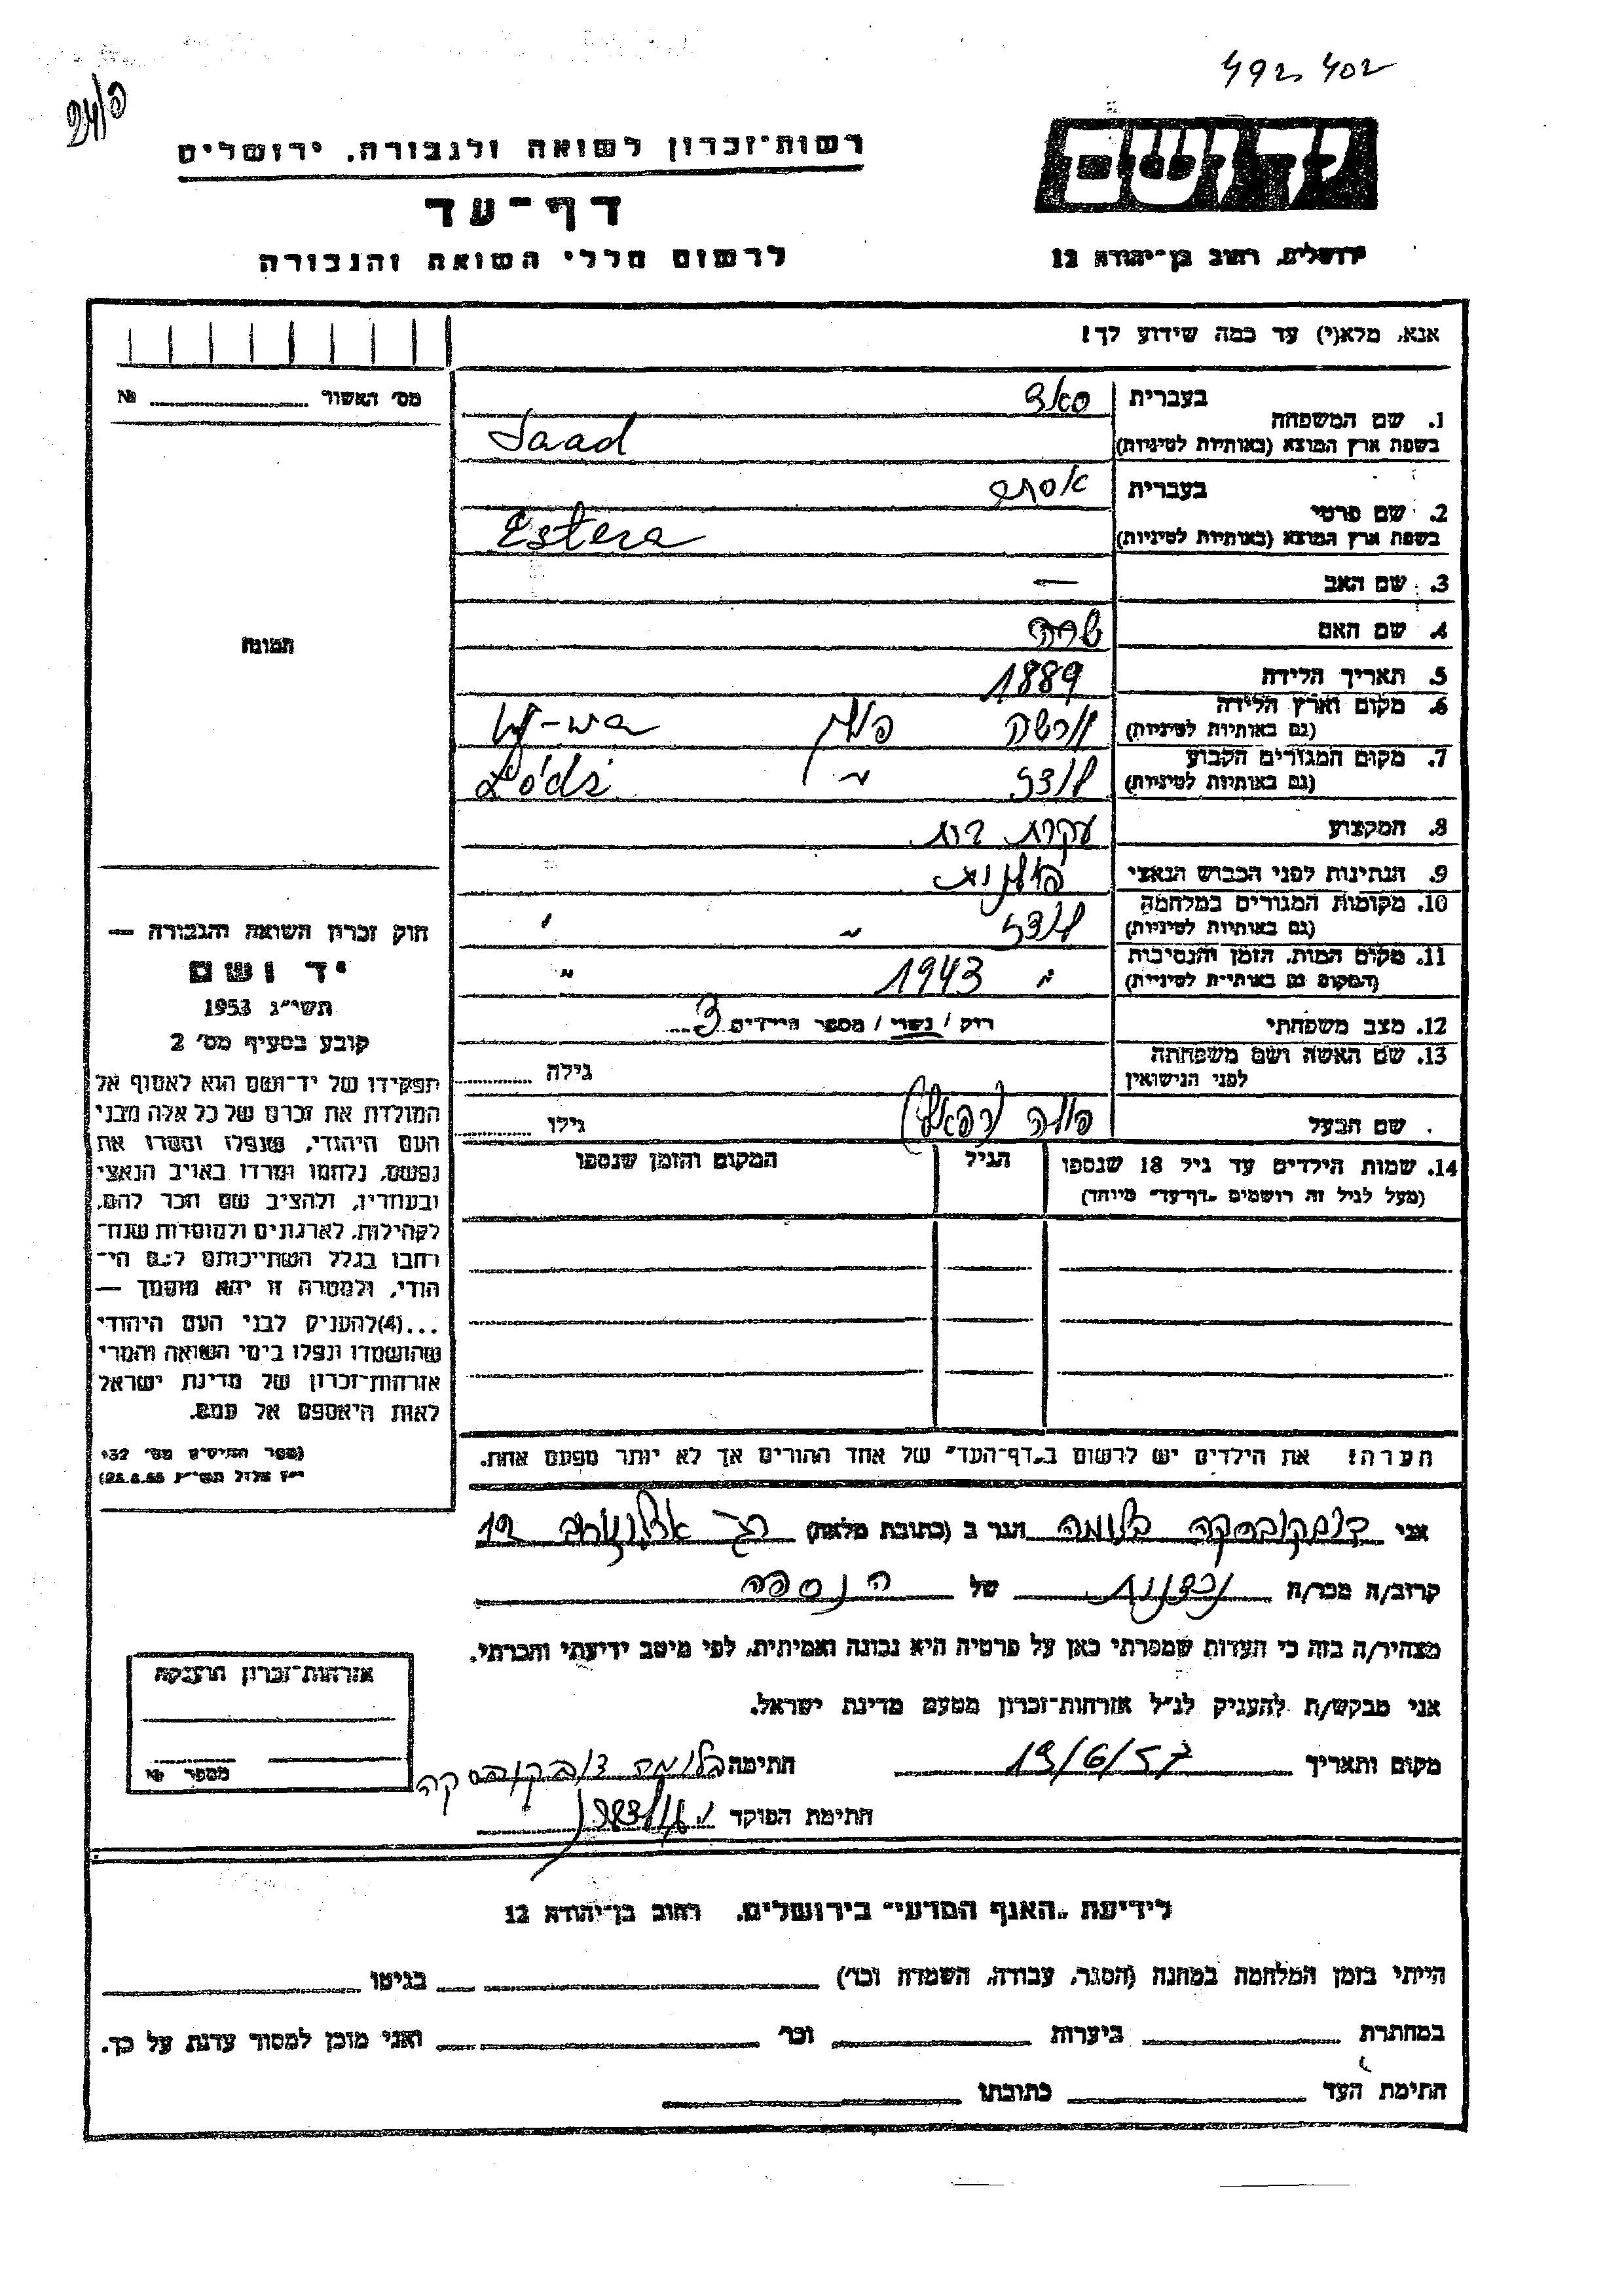 492 402
24/פ
יד ושם
רשות־זכרון לשואה ולגבורה. ירושלים
דף־עד
ירושלים, רחוב בן־יהודה 12
לרשום חללי השואה והגבורה
אנא, מלא(י) עד כמה שידוע לך!
מס׳ האשור № 
1. שם המשפחה
בעברית סאד
בשפת ארץ המוצא (באותיות לטיניות) Saad
2. שם פרטי
בעברית אסתר
בשפת ארץ המוצא (באותיות לטיניות) Estera
3. שם האב —
4. שם האם שרה
5. תאריך הלידה 1889
6. מקום וארץ הלידה
(גם באותיות לטיניות) ורשה פולין W-wa
7. מקום המגורים הקבוע
(גם באותיות לטיניות) לודז׳ " Łódź
8. המקצוע עקרת בית
9. הנתינות לפני הכבוש הנאצי פולנית
10. מקומות המגורים במלחמה
(גם באותיות לטיניות) לודז׳ " "
11. מקום המות, הזמן והנסיבות
(המקום גם באותיות לטיניות) " 1943 "
12. מצב משפחתי רוק / נשוי / מספר הילדים 3
13. שם האשה ושם משפחתה
לפני הנישואין גילה
שם הבעל גילו
14. שמות הילדים עד גיל 18 שנספו
(מעל לגיל זה רושמים „דף־עד״ מיוחד)
הגיל
המקום והזמן שנספו
הערה! את הילדים יש לרשום ב„דף־העד״ של אחד ההורים אך לא יותר מפעם אחת.
תמונה
חוק זכרון השואה והגבורה —
יד ושם
תשי״ג 1953
קובע בסעיף מס׳ 2
תפקידו של יד־ושם הוא לאסוף אל
המולדת את זכרם של כל אלה מבני
העם היהודי, שנפלו ומסרו את
נפשם, נלחמו ומרדו באויב הנאצי
ובעוזריו, ולהציב שם וזכר להם,
לקהילות, לארגונים ולמוסדות שנח־
רבו בגלל השתייכותם לעם הי־
הודי, ולמטרה זו יהא מוסמך —
...(4)להעניק לבני העם היהודי
שהושמדו ונפלו בימי השואה והמרי
אזרחות־זכרון של מדינת ישראל
לאות היאספם אל עמם.
(ספר החוקים מס׳ 132
אני דומקובסקה בלומה הגר ב (כתובת מלאה) 19
קרוב/ה מכר/ה של הנספה
מצהיר/ה בזה כי העדות שמסרתי כאן על פרטיה היא נכונה ואמיתית, לפי מיטב ידיעתי והכרתי.
אני מבקש/ת להעניק לנ״ל אזרחות־זכרון מטעם מדינת ישראל.
מקום ותאריך 19/6/57 חתימה
חתימת הפוקד
אזרחות־זכרון הוענקה
מספר №
לידיעת „האגף המדעי״ בירושלים, רחוב בן־יהודה 12
הייתי בזמן המלחמה במחנה (הסגר, עבודה, השמדה וכו׳) בגיטו
במחתרת ביערות וכו׳ ואני מוכן למסור עדות על כך.
חתימת העד כתובתו